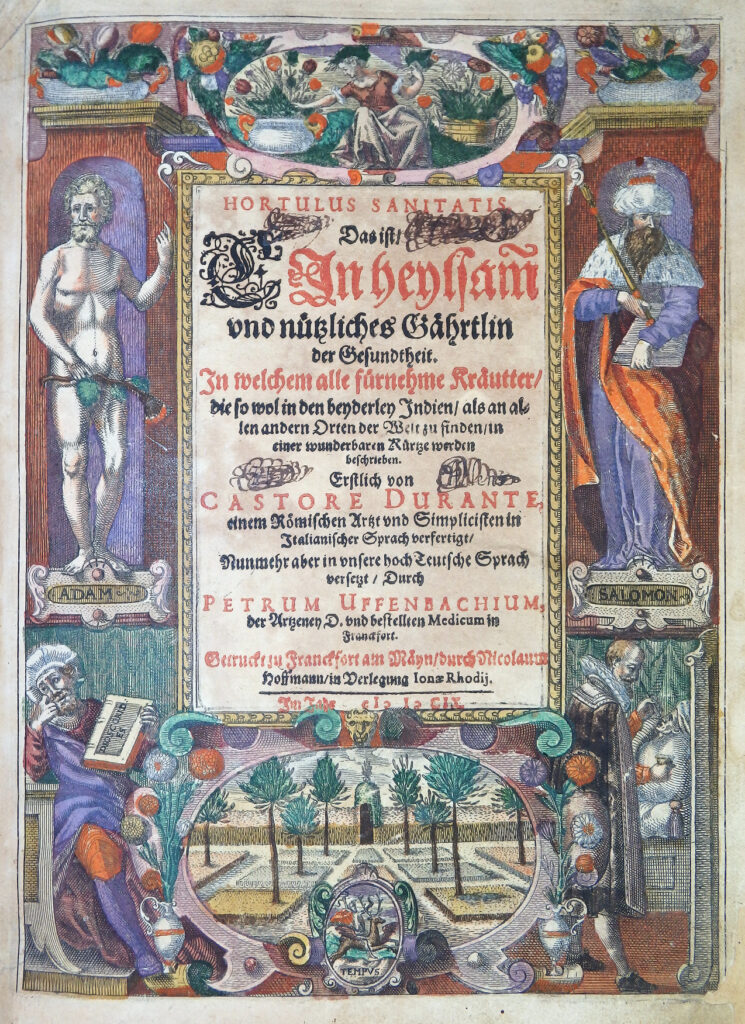 HORTULUS SANITATIS,
Das ist/
EIn heylsam̃
vnd nützliches Gährtlin
der Gesundtheit.
In welchem alle fürnehme Kräutter/
die so wol in den beyderley Indien/ als an al-
len andern Orten der Welt zu finden/ in
einer wunderbaren Kürtze werden
beschrieben.
Erstlich von
CASTORE DURANTE,
einem Römischen Artzt vnd Simplicisten in
Italianischer Sprach verfertigt/
Nunmehr aber in vnsere hoch Teutsche Sprach
versetzt / Durch
PETRUM UFFENBACHIUM,
der Artzeney D. vnd bestellten Medicum in
Franckfort.
Getruckt zu Franckfort am Mäyn/ durch Nicolaum
Hoffmann/ in Verlegung Ionæ Rhodij.
Im Jahr
ADAM
SALOMON
TEMPVS